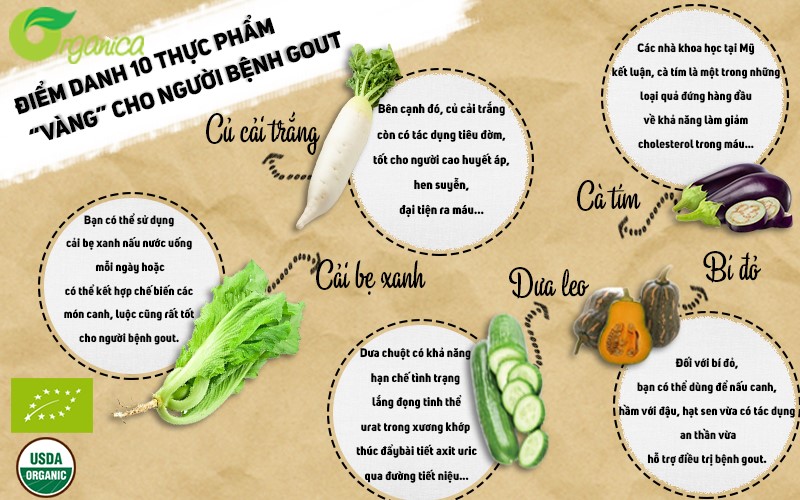 Organica
ĐIỂM DANH 10 THỰC PHẨM
“VÀNG” CHO NGƯỜI BỆNH GOUT
Củ cải trắng
Bên cạnh đó, củ cải trắng
còn có tác dụng tiêu đờm,
tốt cho người cao huyết áp,
hen suyễn,
đại tiện ra máu...
Các nhà khoa học tại Mỹ
kết luận, cà tím là một trong những
loại quả đứng hàng đầu
về khả năng làm giảm
cholesterol trong máu...
Cà tím
Bạn có thể sử dụng
cải bẹ xanh nấu nước uống
mỗi ngày hoặc
có thể kết hợp chế biến các
món canh, luộc cũng rất tốt
cho người bệnh gout.
Cải bẹ xanh
Dưa leo
Bí đỏ
Dưa chuột có khả năng
hạn chế tình trạng
lắng đọng tinh thể
urat trong xương khớp
thúc đẩybài tiết axit uric
qua đường tiết niệu...
Đối với bí đỏ,
bạn có thể dùng để nấu canh,
hầm với đậu, hạt sen vừa có tác dụng
an thần vừa
hỗ trợ điều trị bệnh gout.
USDA
ORGANIC